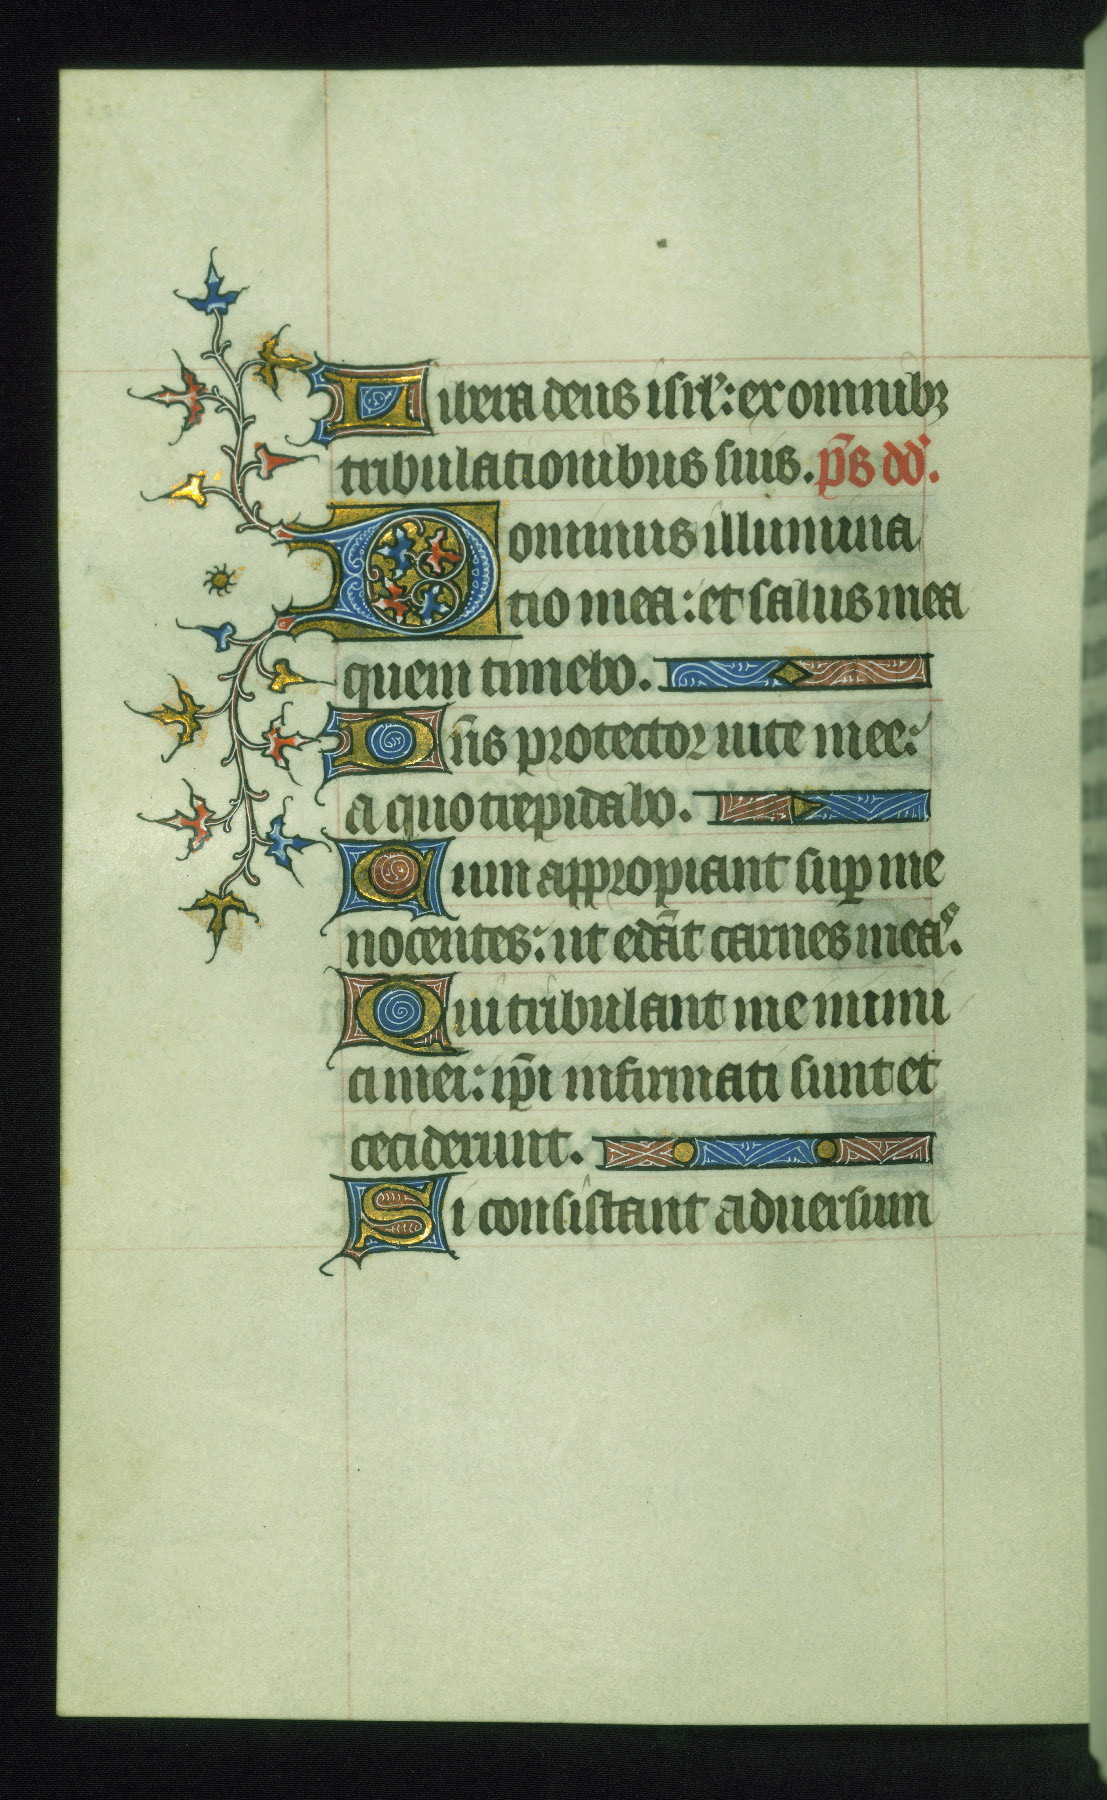 Libera deus isrl̄: ex omnibꝫ
tribulationibus suis. p̄s dd̄.
Dominus illumina
tio mea: et salus mea
quem timebo.
Dn̄s protector uite mee:
a quo trepidabo.
Cum appropiant suꝑ me
nocentes: ut edāt carnes meaˢ.
Qui tribulant me inimi
ci mei: ip̄i infirmati sunt et
ceciderunt.
Si consistant aduersum